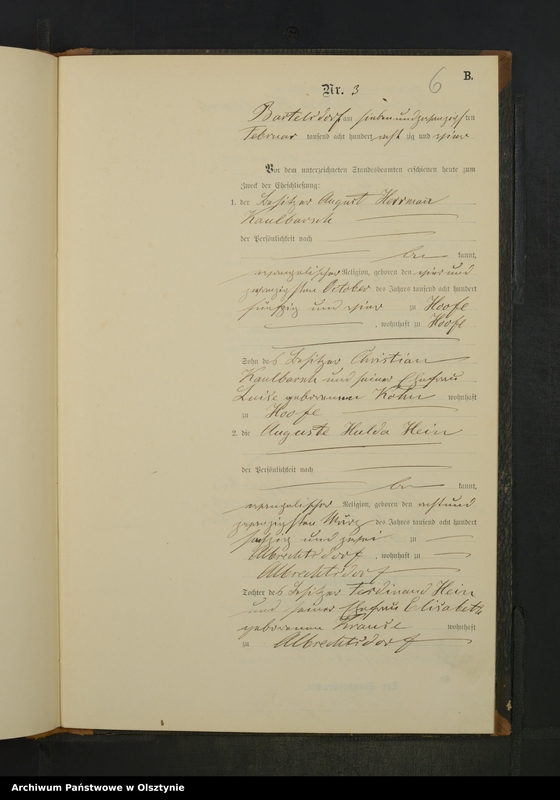 B.
6
Nr. 3
Bartelsdorf am sieben und zwanzigsten
Februar tausend acht hundert acht zig und vier
Vor dem unterzeichneten Standesbeamten erschienen heute zum
Zweck der Eheschließung:
1. der Besitzer August Herrman
Kaulbarsch
der Persönlichkeit nach
be kannt,
evangelischer Religion, geboren den vier und
zwanzigsten October des Jahres tausend acht hundert
fünfzig und vier zu Hoofe
, wohnhaft zu Hoofe
Sohn des Besitzer Christian
Kaulbarsch und seiner Ehefrau
Luise geborenen Kohn wohnhaft
zu Hoofe
2. die Auguste Hulda Hein
der Persönlichkeit nach
be kannt,
evangelischer Religion, geboren den acht und
zwanzigsten März des Jahres tausend acht hundert
sechzig und zwei zu
Albrechtsdorf , wohnhaft zu
Albrechtsdorf
Tochter des Besitzer Ferdinand Hein
und seiner Ehefrau Elisabeth
geborenen Krause wohnhaft
zu Albrechtsdorf
Archiwum Państwowe w Olsztynie